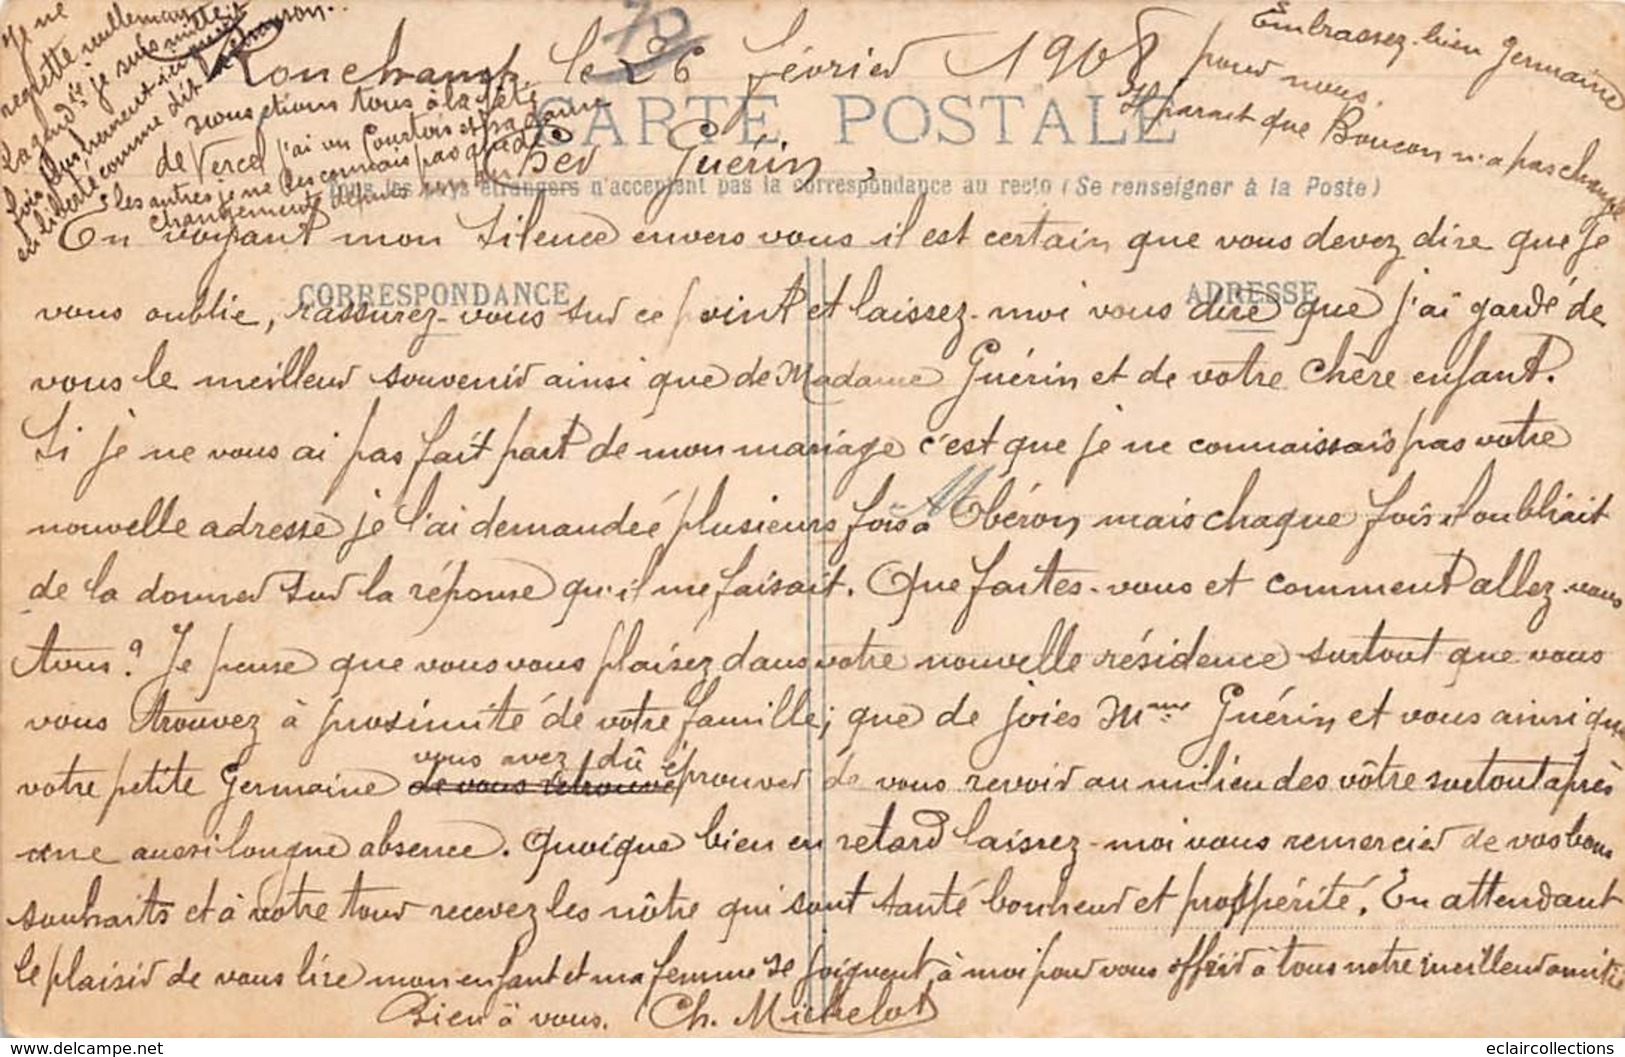 Ronchamp le 26 février 1908
CARTE POSTALE
Tous les pays étrangers n'acceptent pas la correspondance au recto (Se renseigner à la Poste)
CORRESPONDANCE
ADRESSE
Cher Guérin,
En voyant mon silence envers vous il est certain que vous devez dire que je
vous oublie, rassurez-vous sur ce point et laissez-moi vous dire que j'ai gardé de
vous le meilleur souvenir ainsi que de Madame Guérin et de votre chère enfant.
Si je ne vous ai pas fait part de mon mariage c'est que je ne connaissais pas votre
nouvelle adresse je l'ai demandée plusieurs fois à Obéron mais chaque fois il oubliait
de la donner sur la réponse qu'il me faisait. Que faites-vous et comment allez-vous
tous? Je pense que vous vous plaisez dans votre nouvelle résidence surtout que vous
vous trouvez à proximité de votre famille; que de joies Mme Guérin et vous ainsi que
votre petite Germaine de vous retrouver vous avez dû éprouver de vous revoir au milieu des vôtre surtout après
une aussi longue absence. Quoique bien en retard laissez-moi vous remercier de vos bons
souhaits et à votre tour recevez les nôtre qui sont santé bonheur et prospérité. En attendant
le plaisir de vous lire mon enfant et ma femme se joignent à moi pour vous offrir à tous notre meilleur amitié
Bien à vous. Ch. Michelot
Embrassez-bien Germaine
pour nous.
Il parait que Boucon n'a pas changé
nous étions tous à la fête
de Vercel j'ai vu Courtois et sa dame
les autres je ne les connais pas que de
changements depuis
Je ne
regrette nullement
la gend.ie je suis
fois plus
en liberté comme dit
eclaircollections